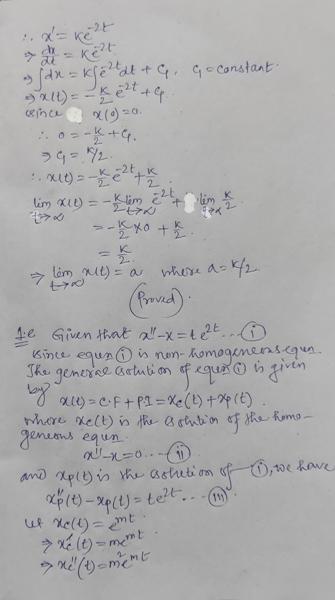 ∴ x' = Ke^{-2t}
⇒ dx/dt = Ke^{-2t}
⇒ ∫dx = K∫e^{-2t}dt + C₁, C₁ = constant.
⇒ x(t) = -K/2 e^{-2t} + C₁.
Since x(0)=0.
∴ 0 = -K/2 + C₁.
⇒ C₁ = K/2.
∴ x(t) = -K/2 e^{-2t} + K/2.
lim_{t→∞} x(t) = -K/2 lim_{t→∞} e^{-2t} + lim_{t→∞} K/2.
= -K/2 × 0 + K/2.
= K/2.
⇒ lim_{t→∞} x(t) = a where a = K/2.
(Proved).
1.e Given that x'' - x = te^{2t} ... (i)
Since equn (i) is non-homogeneous equn.
The general solution of equn (i) is given
by
x(t) = C.F + P.I = xc(t) + xp(t).
where xc(t) is the solution of the homo-
geneous equn.
x'' - x = 0 ... (ii)
and xp(t) is the solution of (i), we have
xp''(t) - xp(t) = te^{2t} ... (iii)
Let xc(t) = e^{mt}
⇒ xc'(t) = me^{mt}
⇒ xc''(t) = m²e^{mt}